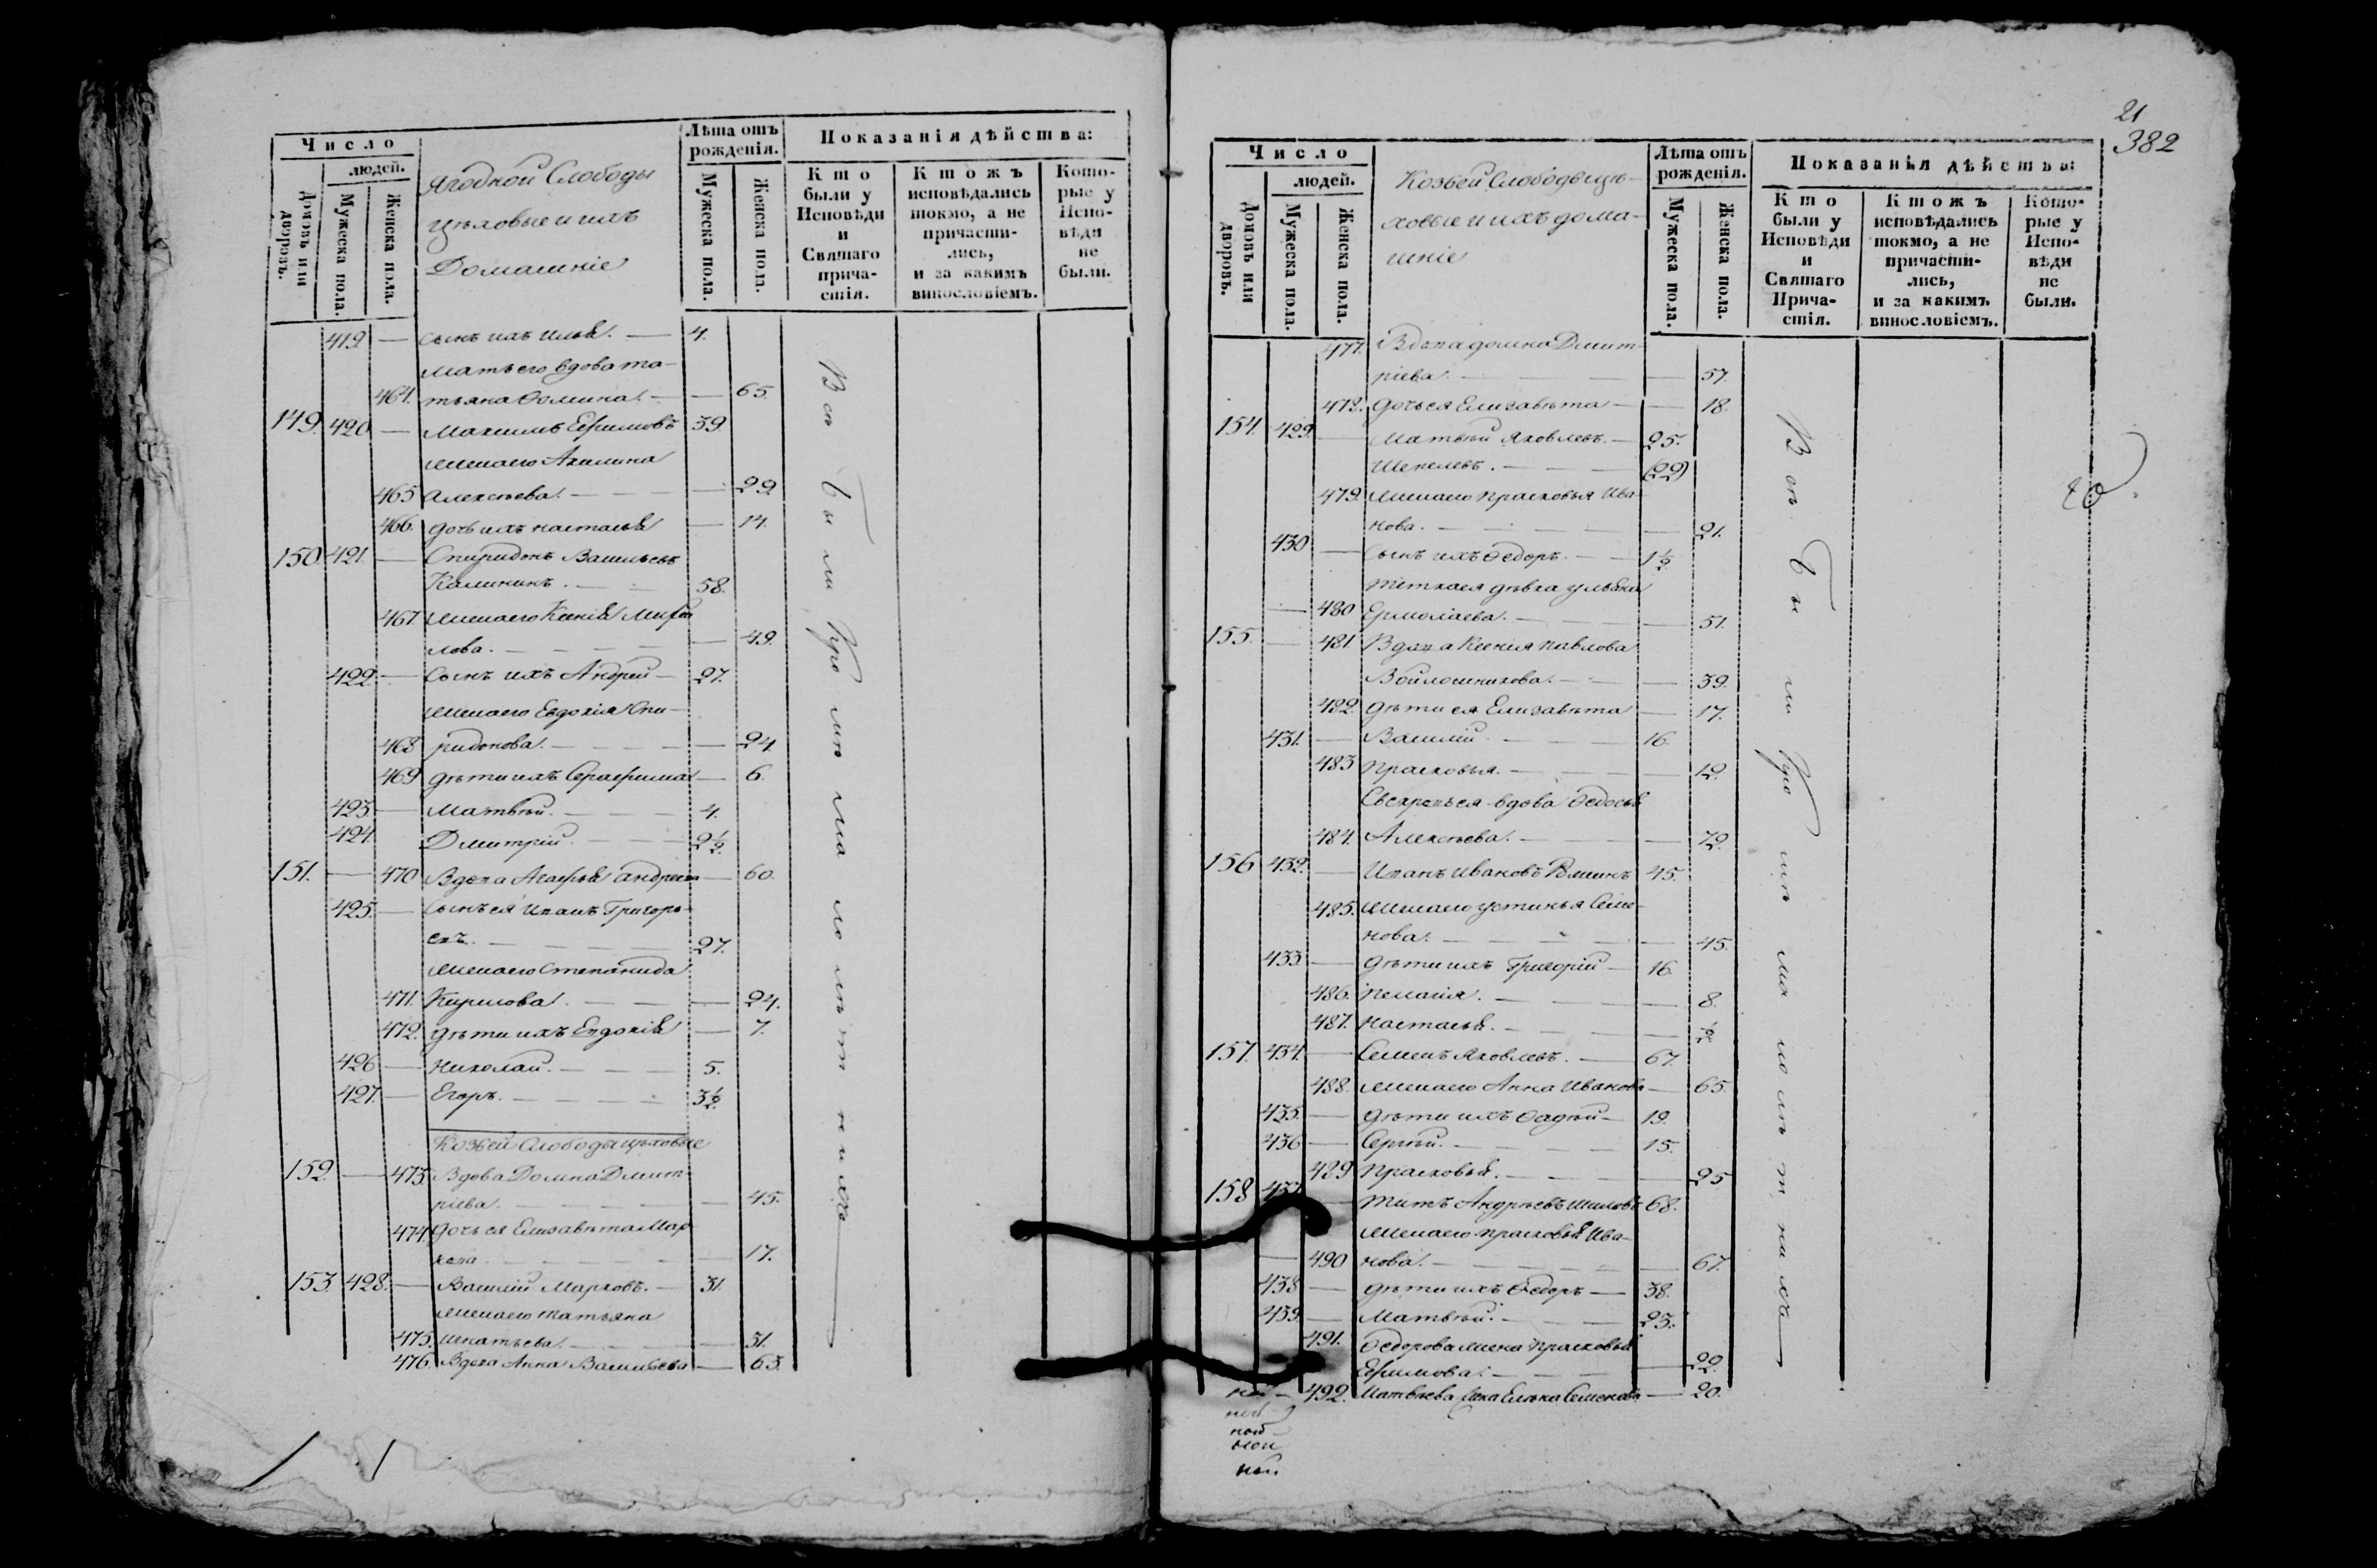 Число
людей.
Домовъ или дворовъ.
Мужеска пола.
Женска пола.
Ягодной Слободы
цеховые и ихъ
Домашніе
Лѣта отъ рожденія.
Мужеска пола.
Женска пола.
Показанія дѣйства:
Кто были у Исповѣди и Святаго причастія.
Ктожъ исповѣдались токмо, а не причастились, и за какимъ винословіемъ.
Которые у Исповѣди не были.
419 — Сынъ ихъ Илья. — 4.
Мать его вдова Та-
464. тьяна Фомина. — 65.
149. 420 — Максимъ Ефимовъ 39
Жена его Акилина
465 Алексѣева. — 29.
466. Дочь ихъ Настасья — 14.
150 421. — Спиридонъ Васильевъ
Калининъ. — 58.
467. Жена его Ксенія Михай
лова. — 49.
422. — Сынъ ихъ Андрей — 27.
Жена его Евдокія Спи-
468 ридонова. — 24.
469 Дѣти ихъ Серафима — 6.
423. — Матвѣй. — 4.
424. Дмитрій. — 2½.
151. — 470 Вдова Агафья Андреева — 60.
425. — Сынъ ея Иванъ Григорь-
евъ. — 27.
Жена его Степанида
471. Кирилова. — 24.
472. Дѣти ихъ Евдокія — 7.
426 — Николай. — 5.
427. — Егоръ. — 3½.
Козьей Слободы цеховые
152. — 473. Вдова Домна Дмит-
ріева. — 45.
474. Дочь ея Елизавета Мар
кова — 17.
153. 428. — Василій Марковъ. — 31.
Жена его Татьяна
475. Игнатьева. — 31.
476. Вдова Анна Васильева — 63.
Всѣ были кромѣ малолѣтнихъ
21
382
Число
людей.
Домовъ или дворовъ.
Мужеска пола.
Женска пола.
Козьей Слободы це-
ховые и ихъ дома-
шніе
Лѣта отъ рожденія.
Мужеска пола.
Женска пола.
Показанія дѣйства:
Кто были у Исповѣди и Святаго Причастія.
Ктожъ исповѣдались токмо, а не причастились, и за какимъ винословіемъ.
Которые у Исповѣди не были.
477. Вдова Домна Дмит-
ріева. — 57.
472. Дочь ея Елизавета — 18.
154. 429. — Матвѣй Яковлевъ. — 25.
Шепелевъ. — (29)
479. Жена его Прасковья Ива-
нова. — 21.
430 — Сынъ ихъ Ѳедоръ. — 1½
Тетка ея дѣвка Ульяна
— 480 Ермолаева. — 51.
155. — 481. Вдова Ксенія Павлова
Войлошникова. — 39.
482. Дѣти ея Елизавета — 17.
431. — Василій. — 16.
483 Прасковья. — 12.
Свекровь ея вдова Ѳедосья
484. Алексѣева. — 72.
156 432. — Иванъ Ивановъ 45.
485. Жена его Устинья Семе-
нова. — 45.
433. — Дѣти ихъ Григорій — 16.
486. Пелагія. — 8.
487. Настасья. — ½
157. 434. — Семенъ Яковлевъ. — 67.
488. Жена его Анна Иванова — 65.
435. — Дѣти ихъ Фадѣй — 19.
436 — Сергѣй. — 15.
489 Прасковья. — 25
158 437 — Титъ Андрѣевъ Шиловъ 68.
Жена его Прасковья Ива-
— 490 нова. — 67.
438 — Дѣти ихъ Ѳедоръ — 38.
439. — Матвѣй. — 23.
491. Ѳедорова жена Прасковья
Ефимова. — 22.
492. Матвѣева жена Елена Семенова — 20.
Всѣ были кромѣ малолѣтнихъ
ной
ной
ной
ной